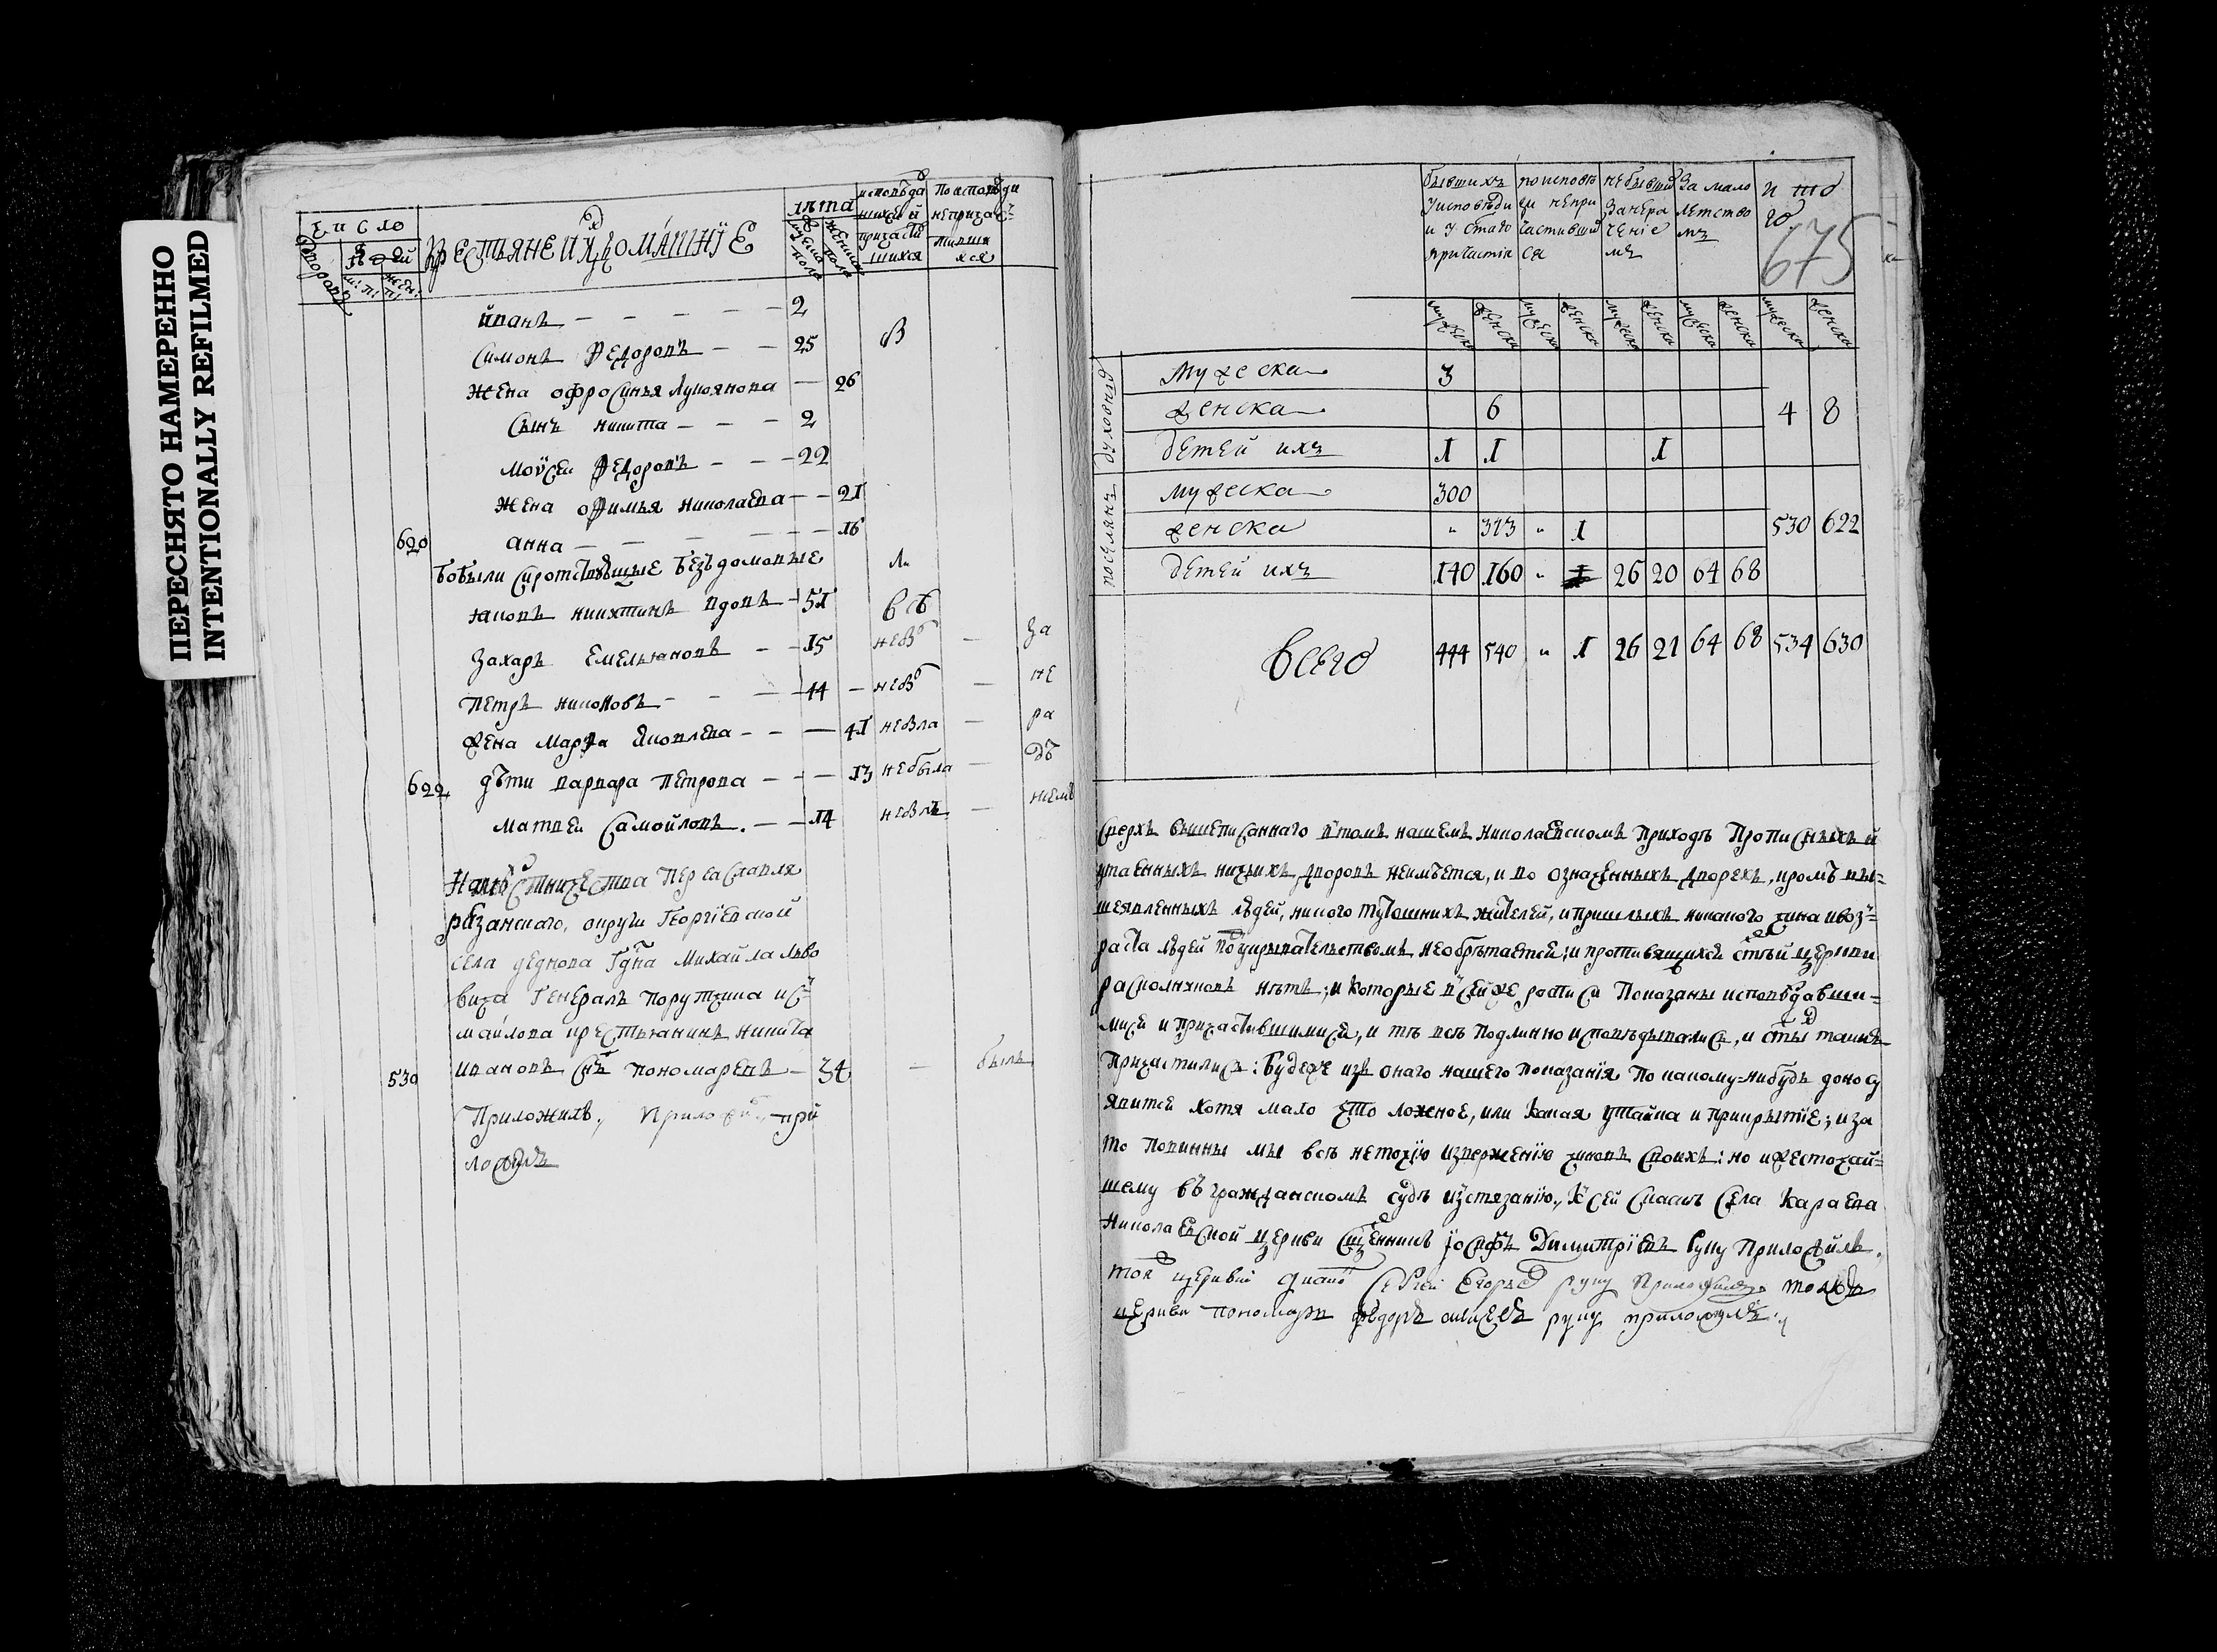 ПЕРЕСНЯТО НАМЕРЕННО
INTENTIONALLY REFILMED
Число
Дворовъ
Людей
Крестьяне и ихъ домашніе
лѣта
мужеска пола
женска пола
исповѣдавшихся и причастившихся
По исповѣди не причастившихся
Иванъ — — — — — 2
Симонъ Ѳедоровъ — — 25 в
Жена Офросинья Лукоянова — 26
Сынъ Никита — — — 2
Моѵсеи Ѳедоровъ — — — 22
Жена Офимья Николаева — — 21
620 Анна — — — — — 16
Бобыли сиротствующые бездомовые ли
Іаковъ Никитинъ вдовъ — 51 всѣ
Захаръ Емельяновъ — — 15 небы — за
Петръ Никоновъ — — — 44 — небы — не
Жена Марѳа Яковлева — — — 41 небыла — ра
622 дѣти Варвара Петрова — — — 13 небыла — дѣ
Матвеи Самойловъ — — 14 небылъ — ніемъ
Намѣстничества Переславля
рѣзанскаго, округи Георгіевской
села Деднова Гдна Михайла Льво
вича Генералъ Порутчика Из
майлова крестьянинъ Никита
530 Ивановъ снъ Пономаревъ — 34 — былъ
Приложилъ, Приложилъ, при
ложилъ
бывшихъ у исповѣди и у стаго причастія
по исповѣди не причастившихся
не бывши за нераченіемъ
За малолетствомъ
итого
675
мужеска женска мужеска женска мужеска женска мужеска женска мужеска женска
духовныхъ
Мужеска 3
женска 6 4 8
детей ихъ 1 1 1
поселянъ
мужеска 300
женска " 373 " 1 530 622
детей ихъ 140 160 " 26 20 64 68
Всего 444 540 " 1 26 21 64 68 534 630
Сверхъ вышеписаннаго в томъ нашемъ Николаевскомъ приходѣ прописныхъ и
утаенныхъ ничьихъ дворовъ неимѣется, и во означенныхъ дворехъ, кромѣ вы=
шеявленныхъ людей, никого тутошнихъ жителей, и пришлыхъ никакого чина ивоз=
раста людей подукрывательствомъ необрѣтается; и противящихся стѣй церкви
расколниковъ нѣтъ; и которые в сей же росписи показаны исповѣдавши=
мися и причастившимися, и тѣ всѣ подлинно исповѣдывались, и стых таинъ
причастились: будеже изъ онаго нашего показанія по какому-нибудь доносу
явится хотя мало что ложное, или какая утайка и прикрытіе; и за
то повинны мы всѣ неточію изверженію чиновъ своихъ: но и жесточай=
шему въ гражданскомъ судѣ истязанію, К сей сказкѣ села Караева
Николаевской церкви священникъ Іосифъ Димитріевъ руку приложилъ,
тоя церкви диако Сергеи Егоровъ руку приложилъ тояже
церкви пономарь Ѳедоръ руку приложилъ